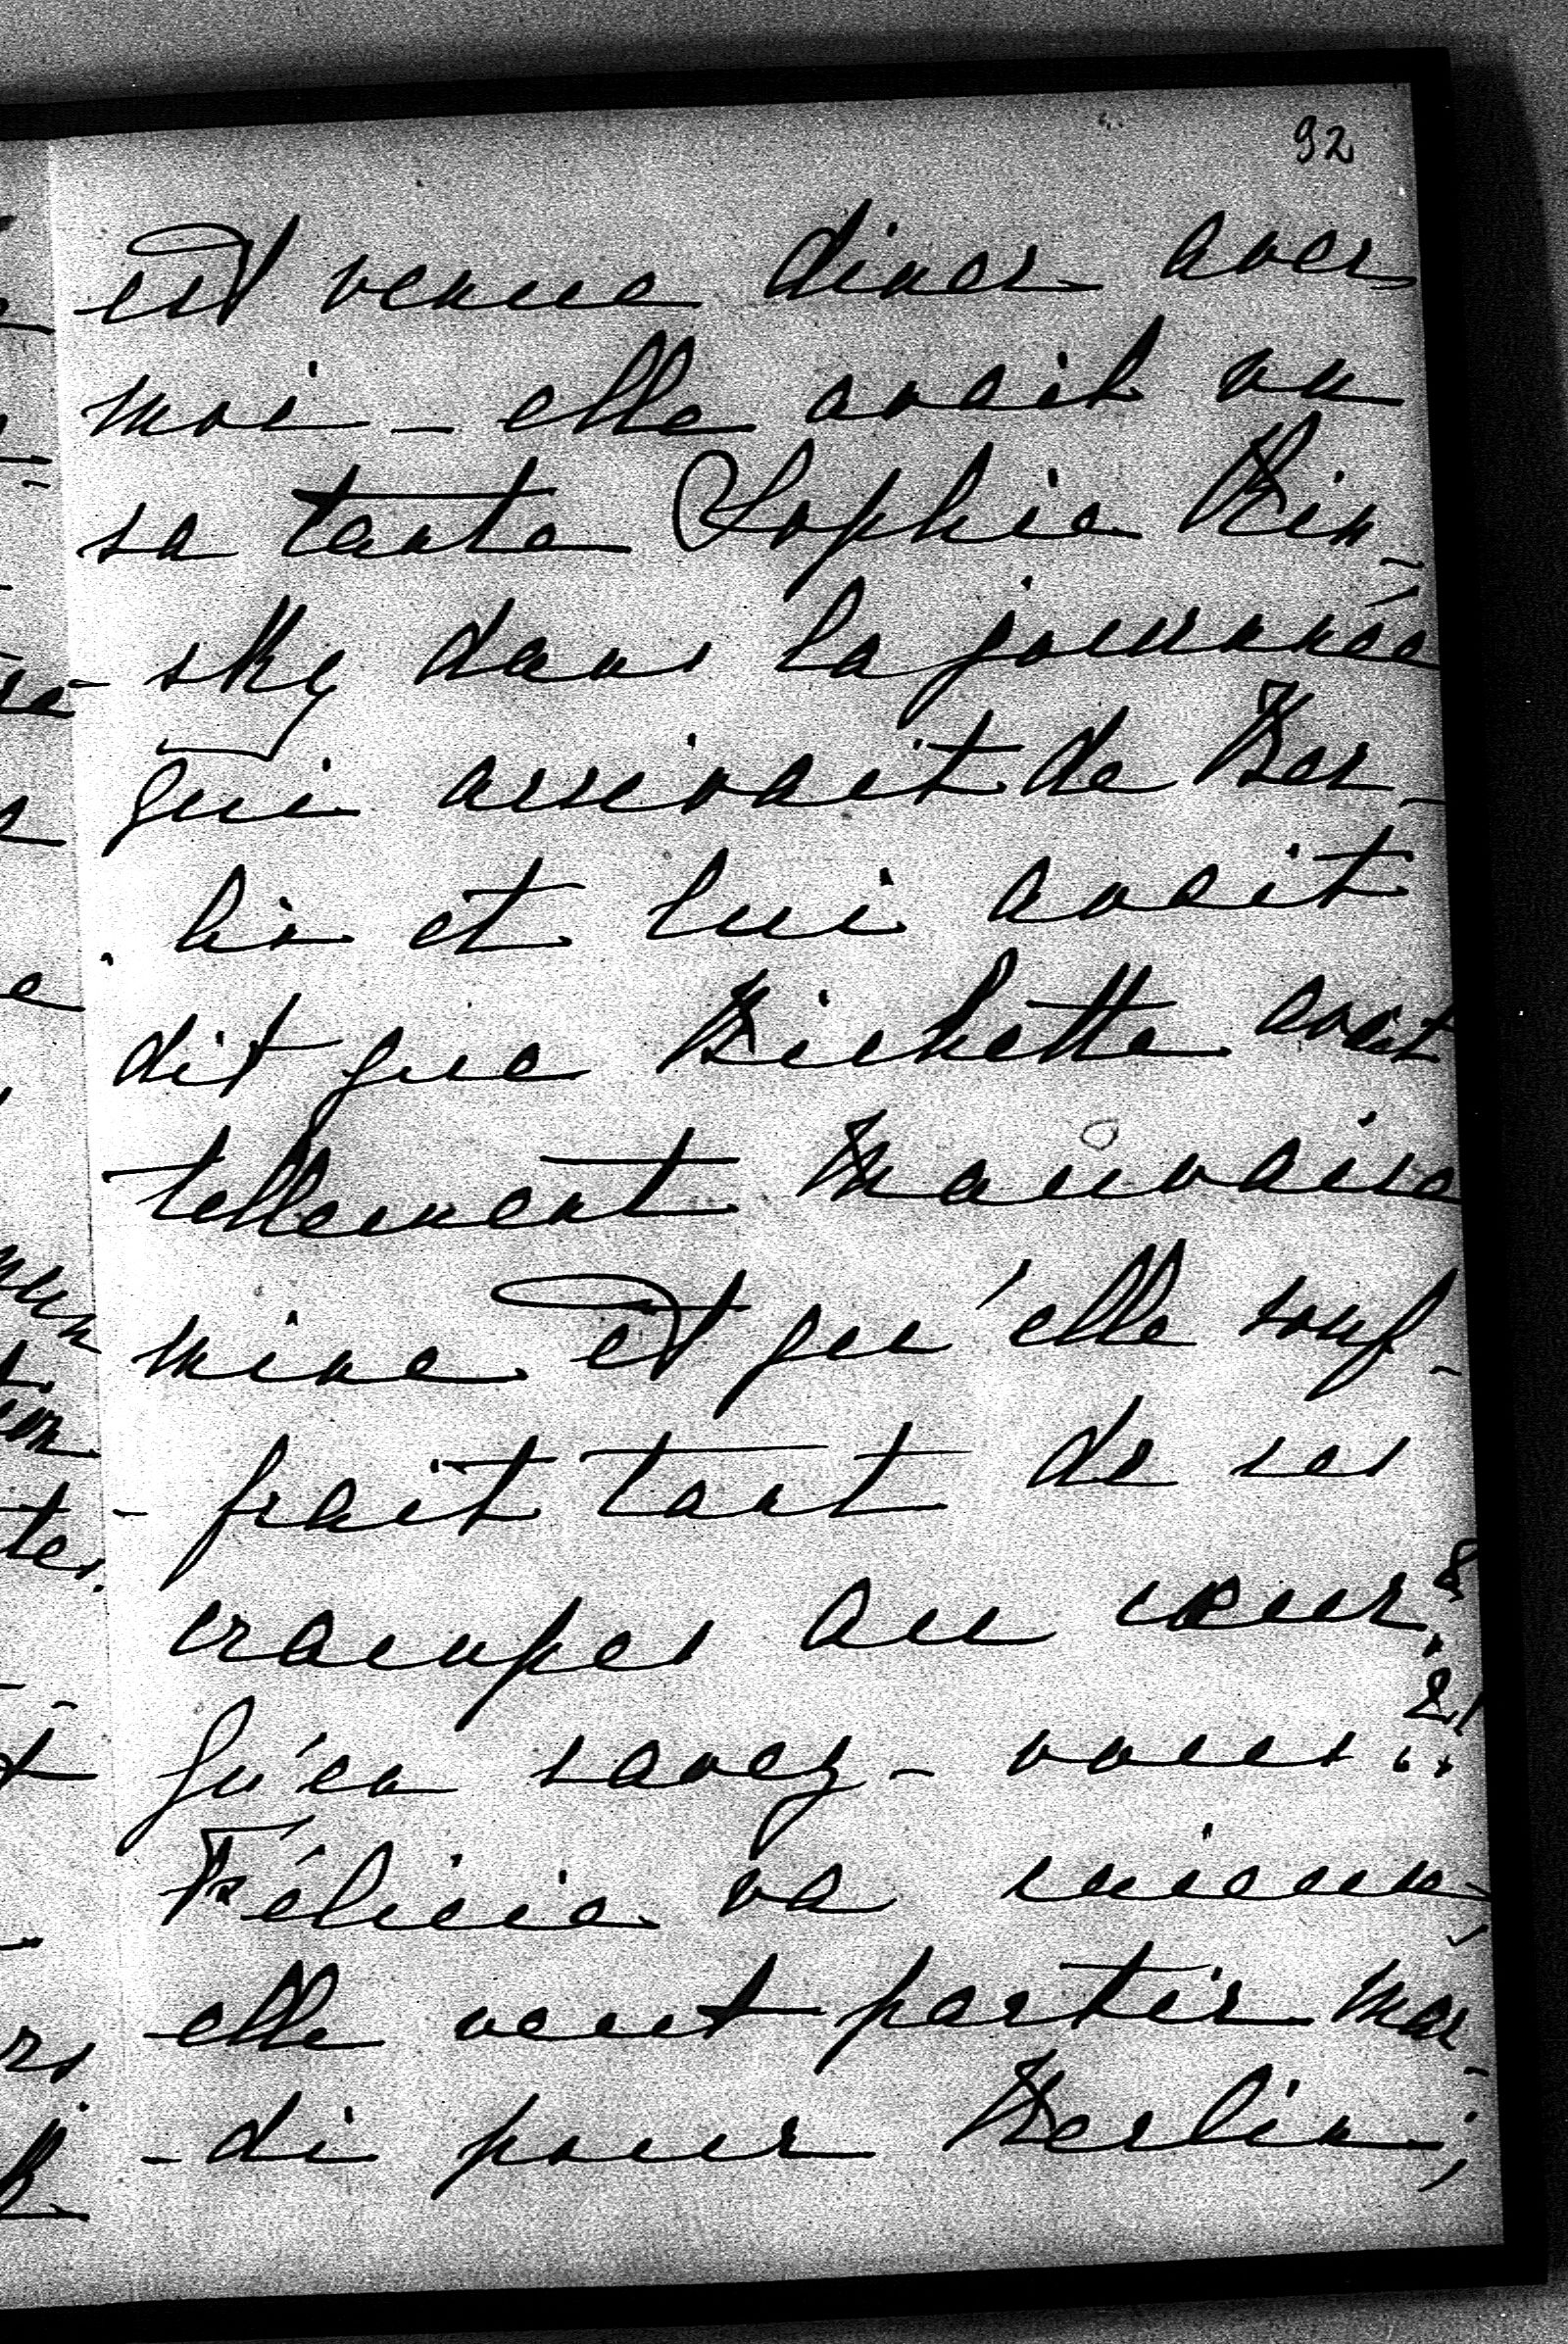 92
est venue diner avec
moi – elle avait vu
sa tante Sophie Kin-
-sky dans la journée
qui arrivait de Ber-
lin et lui avait
dit que Bichette avait
tellement mauvaise
mine et qu'elle souf-
-frait tant de ses
crampes au cœur?
Qu'en savez-vous?!
Félicie va mieux,
elle veut partir mar-
-di pour Berlin;